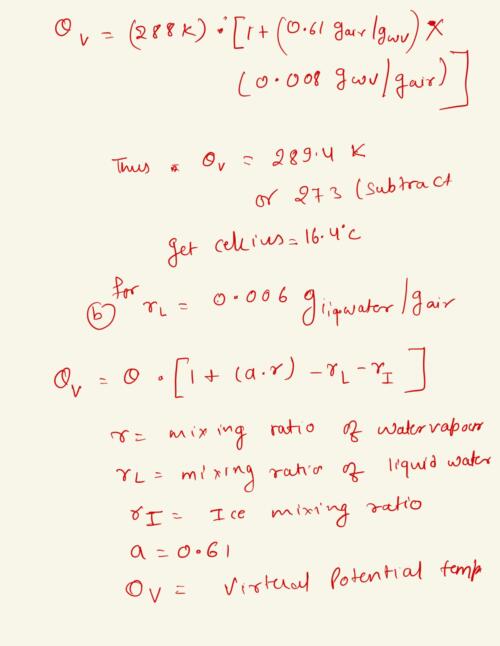 θv = (288 K) • [1 + (0.61 gair/gwv) ×
(0.008 gwv/gair)]
Thus • θv = 289.4 K
or 273 (subtract
get celcius = 16.4°c
(b) for rL = 0.006 gliqwater/gair
θv = θ • [1 + (a.r) - rL - rI]
r = mixing ratio of water vapour
rL = mixing ratio of liquid water
rI = Ice mixing ratio
a = 0.61
θv = Virtual Potential temp